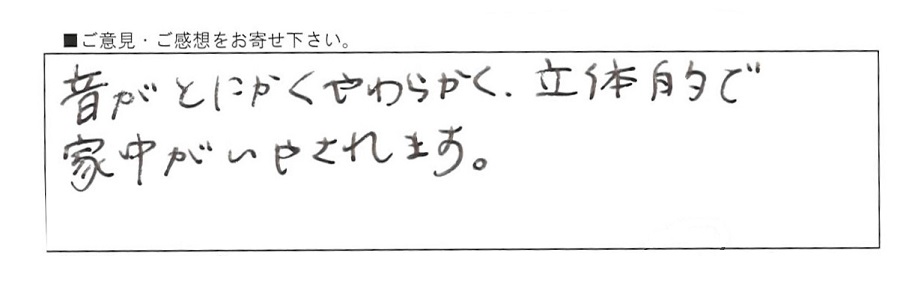 ■ご意見・ご感想をお寄せ下さい。
音がとにかくやわらかく、立体的で
家中がいやされます。